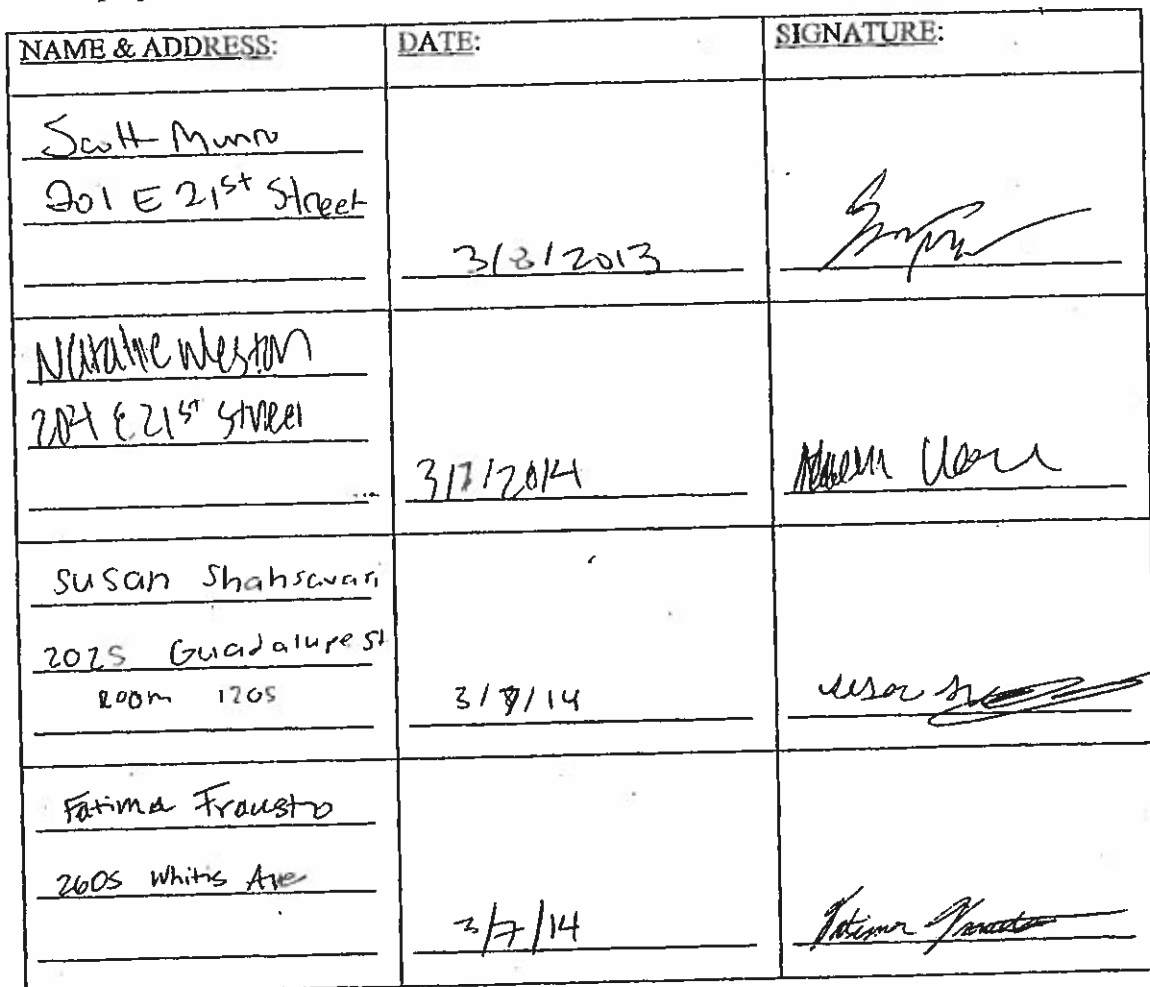 NAME & ADDRESS: DATE: SIGNATURE:
Scott Munro
201 E 21st Street
3/8/2013
Natalie Weston
204 E 21st Street
3/7/2014
Susan Shahsavari
2025 Guadalupe St
Room 1205
3/7/14
Fatima Frausto
2605 Whitis Ave
3/7/14
Fatima Frausto